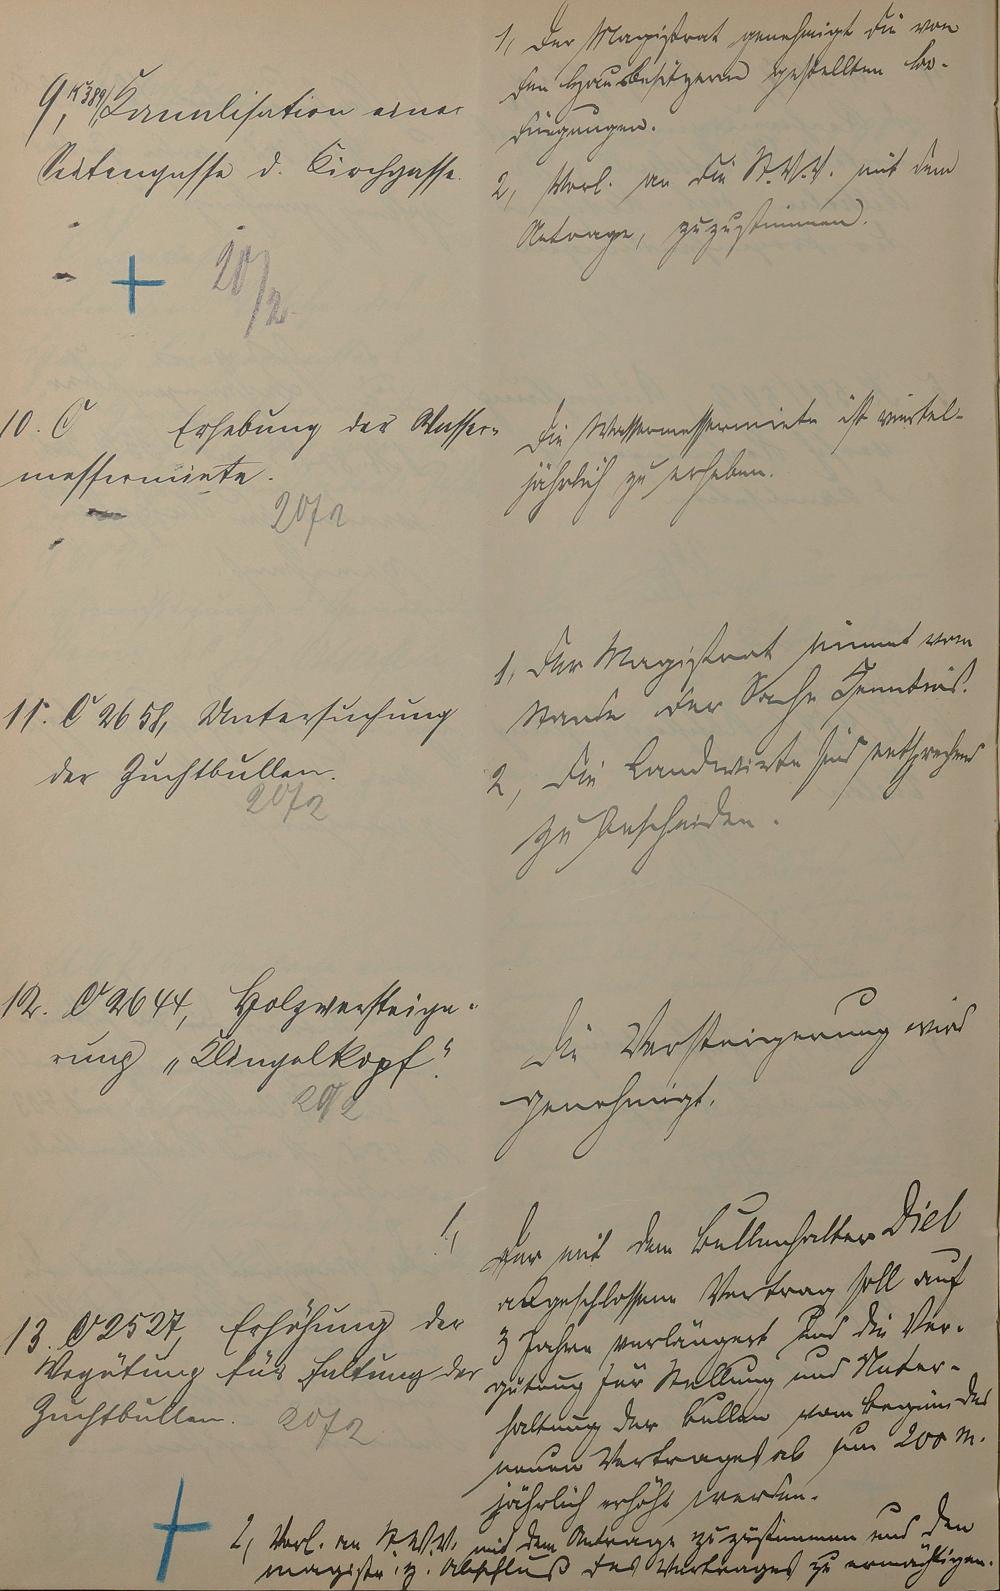 9, K 389, Kanalisation einer
Seitengasse d. Kirchgasse.
20/2
1, Der Magistrat genehmigt die von
den Hausbesitzern gestellten Be-
dingungen.
2, Vorl. an die St.V.V. mit dem
Antrage, zuzustimmen.
10. C Erhebung der Wasser-
messermiete.
20/2
Die Wassermessermiete ist viertel-
jährlich zu erheben.
11. C 2658, Untersuchung
der Zuchtbullen.
20/2
1, Der Magistrat nimmt vom
Stande der Sache Kenntnis.
2, Die Landwirte sind entsprechend
zu bescheiden.
12. C 2644, Holzversteige-
rung „Klingelkopf".
20/2
Die Versteigerung wird
genehmigt.
13. C 2527, Erhöhung der
Vegütung für Haltung der
Zuchtbullen.
20/2
1, Der mit dem Bullenhalter Diel
abgeschlossene Vertrag soll auf
3 Jahre verlängert und die Ver-
gütung für Stellung und Unter-
haltung der Bullen vom Beginn des
neuen Vertrages ab um 200 M.
jährlich erhöht werden.
2, Vorl. an St.V.V. mit dem Antrage zuzustimmen und den
Magistr. z. Abschluß des Vertrages zu ermächtigen.